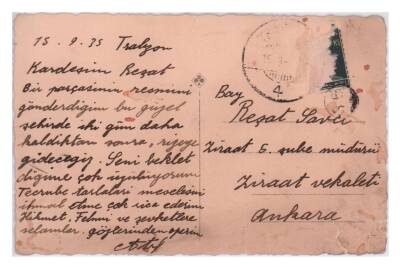 15.9.35 Trabzon
Kardeşim Reşat
Bir parçasının resmini
gönderdiğim bu güzel
şehirde iki gün daha
kaldıktan sonra, rizeye
gideceğiz. Seni beklet
diğime çok üzülüyorum
Tecrube tarlaları meselesini
ihmal etme çok rica ederim
Hikmet, Fehmi ve şevketlere
selamlar. gözlerinden öperim
Bay
Reşat Savcı
Ziraat 5. şube müdürü
Ziraat vekaleti
Ankara
4